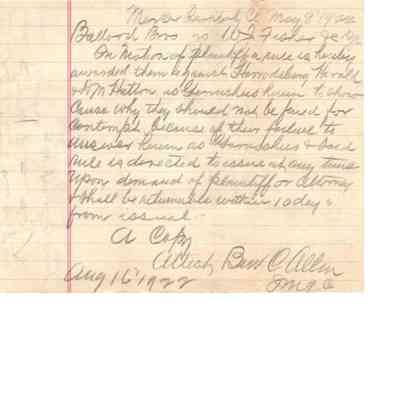 Mercer Quarterly Ct May 8" 1922
Ballard Bros vs W. S. Fisher &c
On Motion of plaintiff a rule is hereby
awarded them against Harrodsburg Herald
as Garnishees herein to show
Cause why they should not be fined for
Contempt because of their failure to
answer herein as Garnishees & said
rule is directed to issue at any time
upon demand of plaintiff or Attorney
& shall be returnable within 10 days
from issual
A Copy
Attest, Ben C Allin
Aug 16 1922